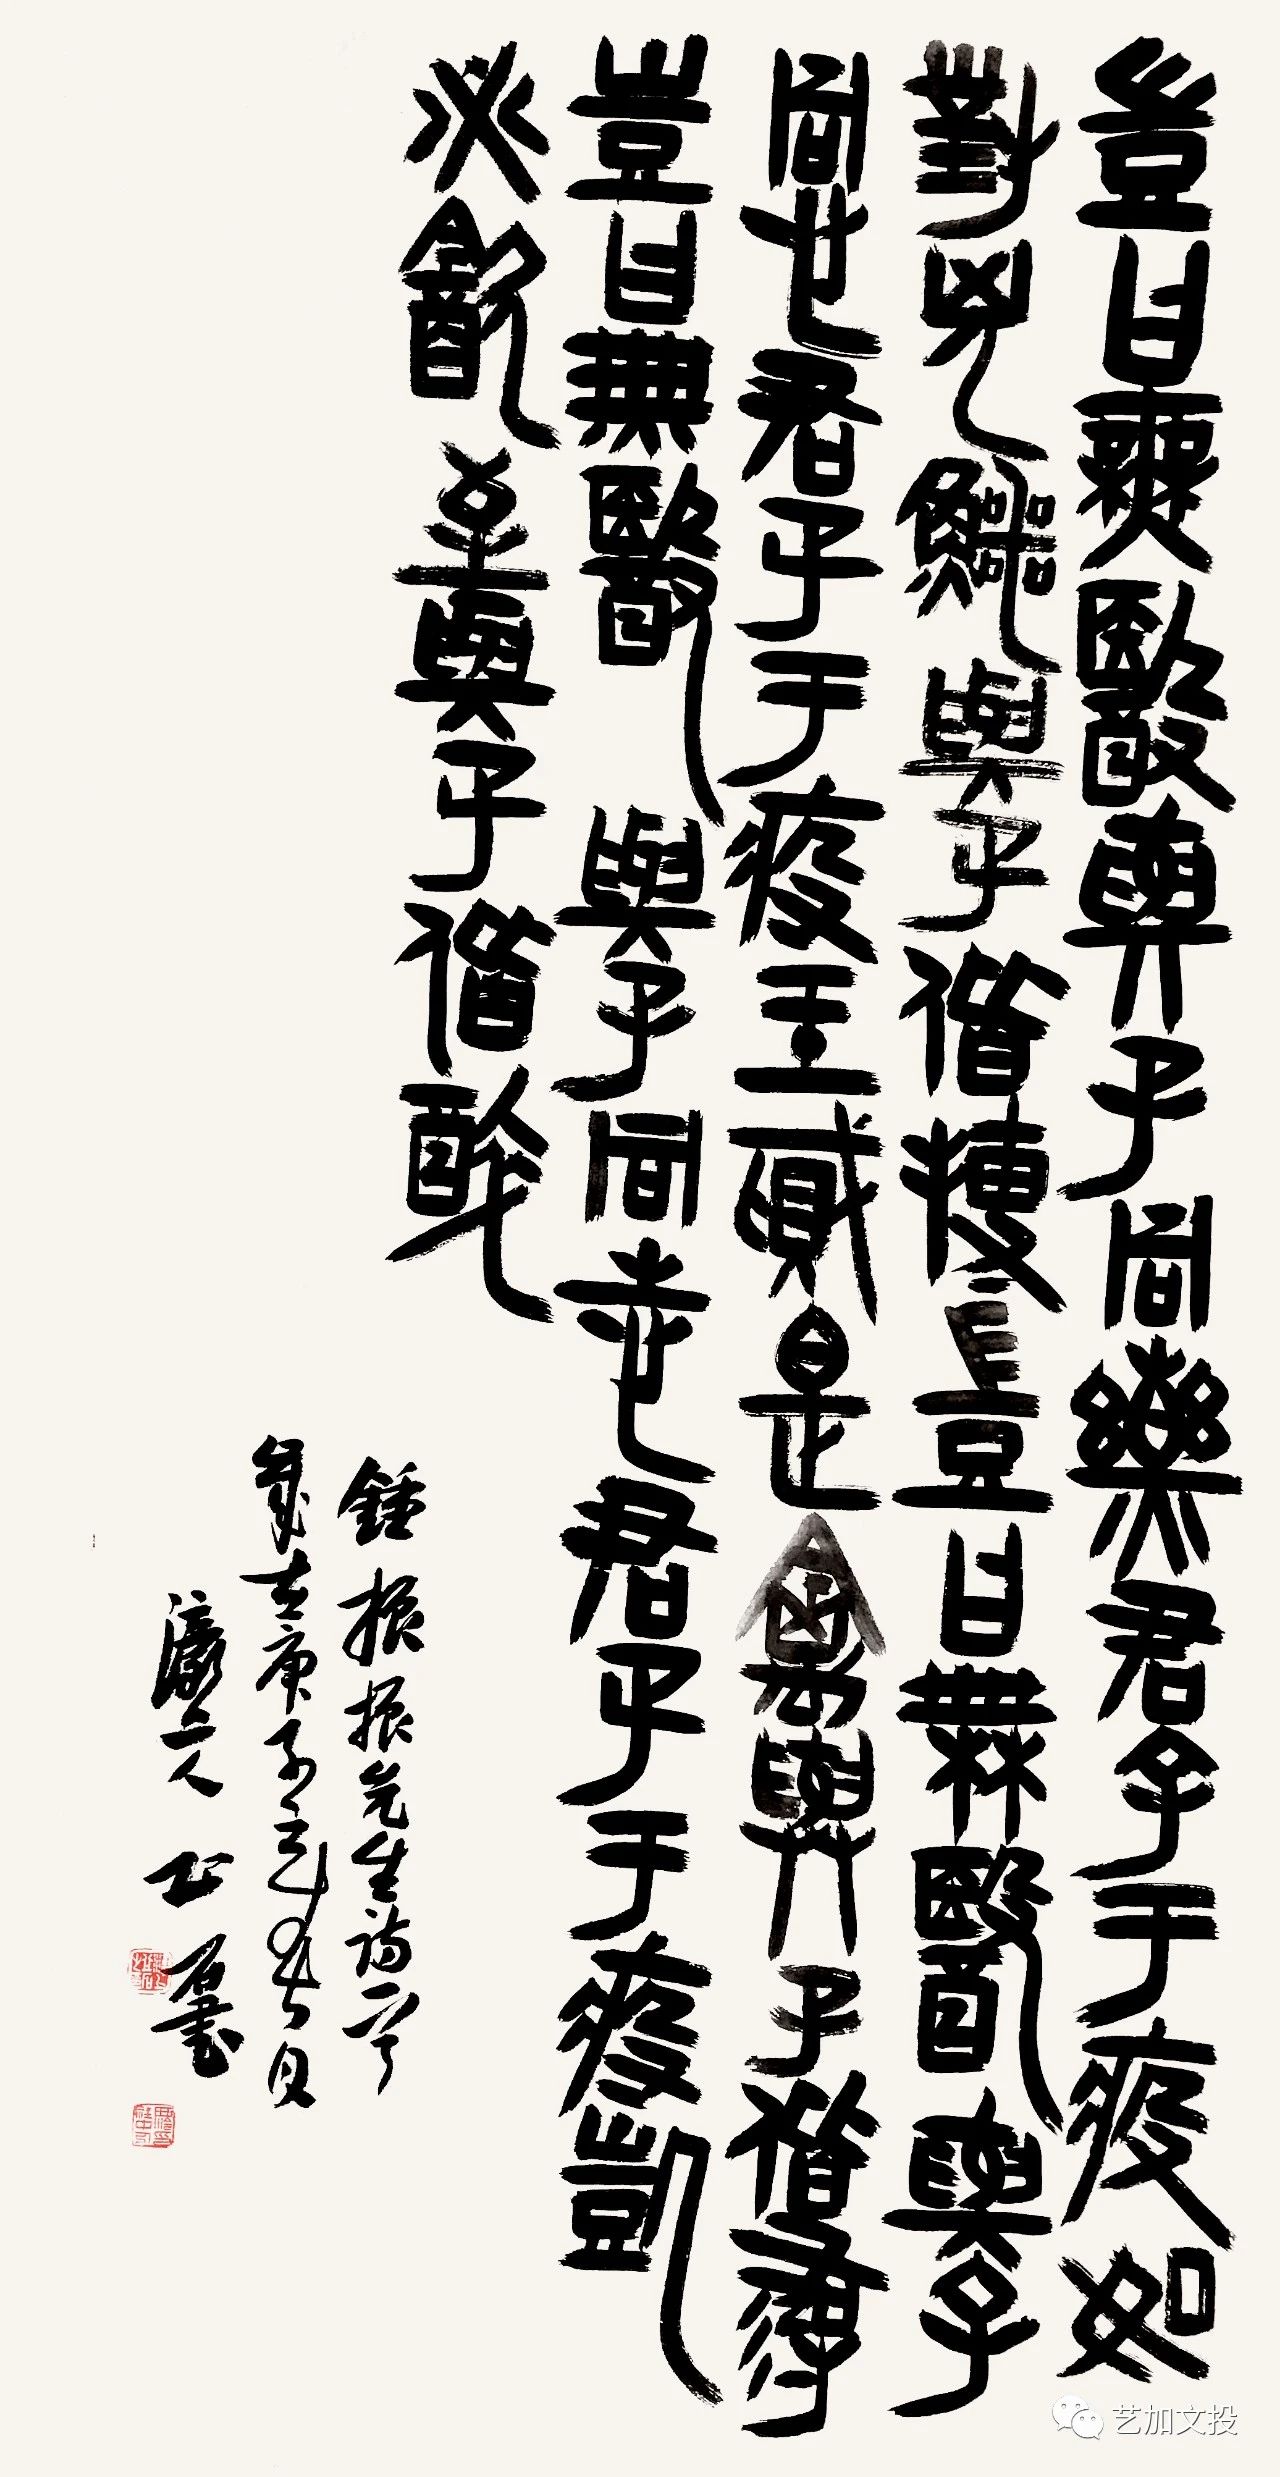 豈曰無醫與子同樂君子于疫如
對兕鱷與子偕搏豈曰無醫與子
同世君子于疫是與子偕
豈曰無醫與子同君子于疫凱
必飲至與子偕醉
鍾振振先生詩一首
歲在庚子之春月
人石書
艺加文投